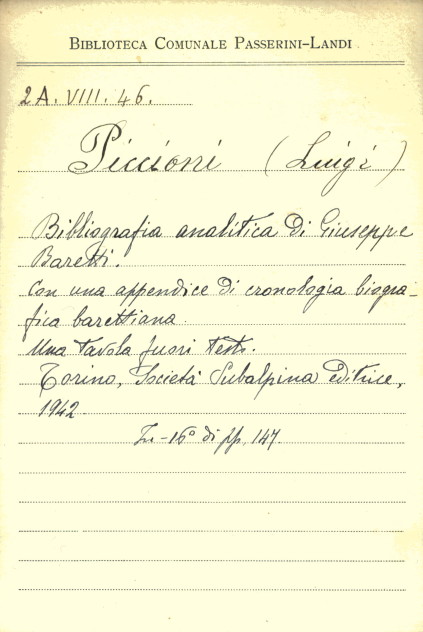 BIBLIOTECA COMUNALE PASSERINI-LANDI
2A. VIII. 46.
Piccioni (Luigi)
Bibliografia analitica di Giuseppe
Baretti.
Con una appendice di cronologia biogra-
fica barettiana.
Una tavola fuori testo.
Torino, Società Subalpina editrice,
1942.
In-16° di pp. 147.